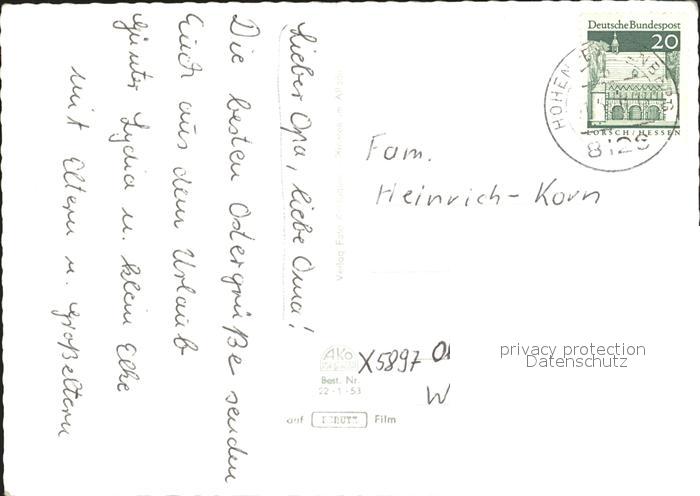 Lieber Opa, liebe Oma!
Die besten Ostergrüße senden
Euch aus dem Urlaub
Günter Lydia u. klein Elke
mit Eltern u. Großeltern
Verlag Foto
AKO
Best. Nr.
22-1-53
auf PERUTZ Film
X5897
W
Deutsche Bundespost
20
LORSCH/HESSEN
HOHEN
8126
Fam.
Heinrich-Korn
privacy protection
Datenschutz